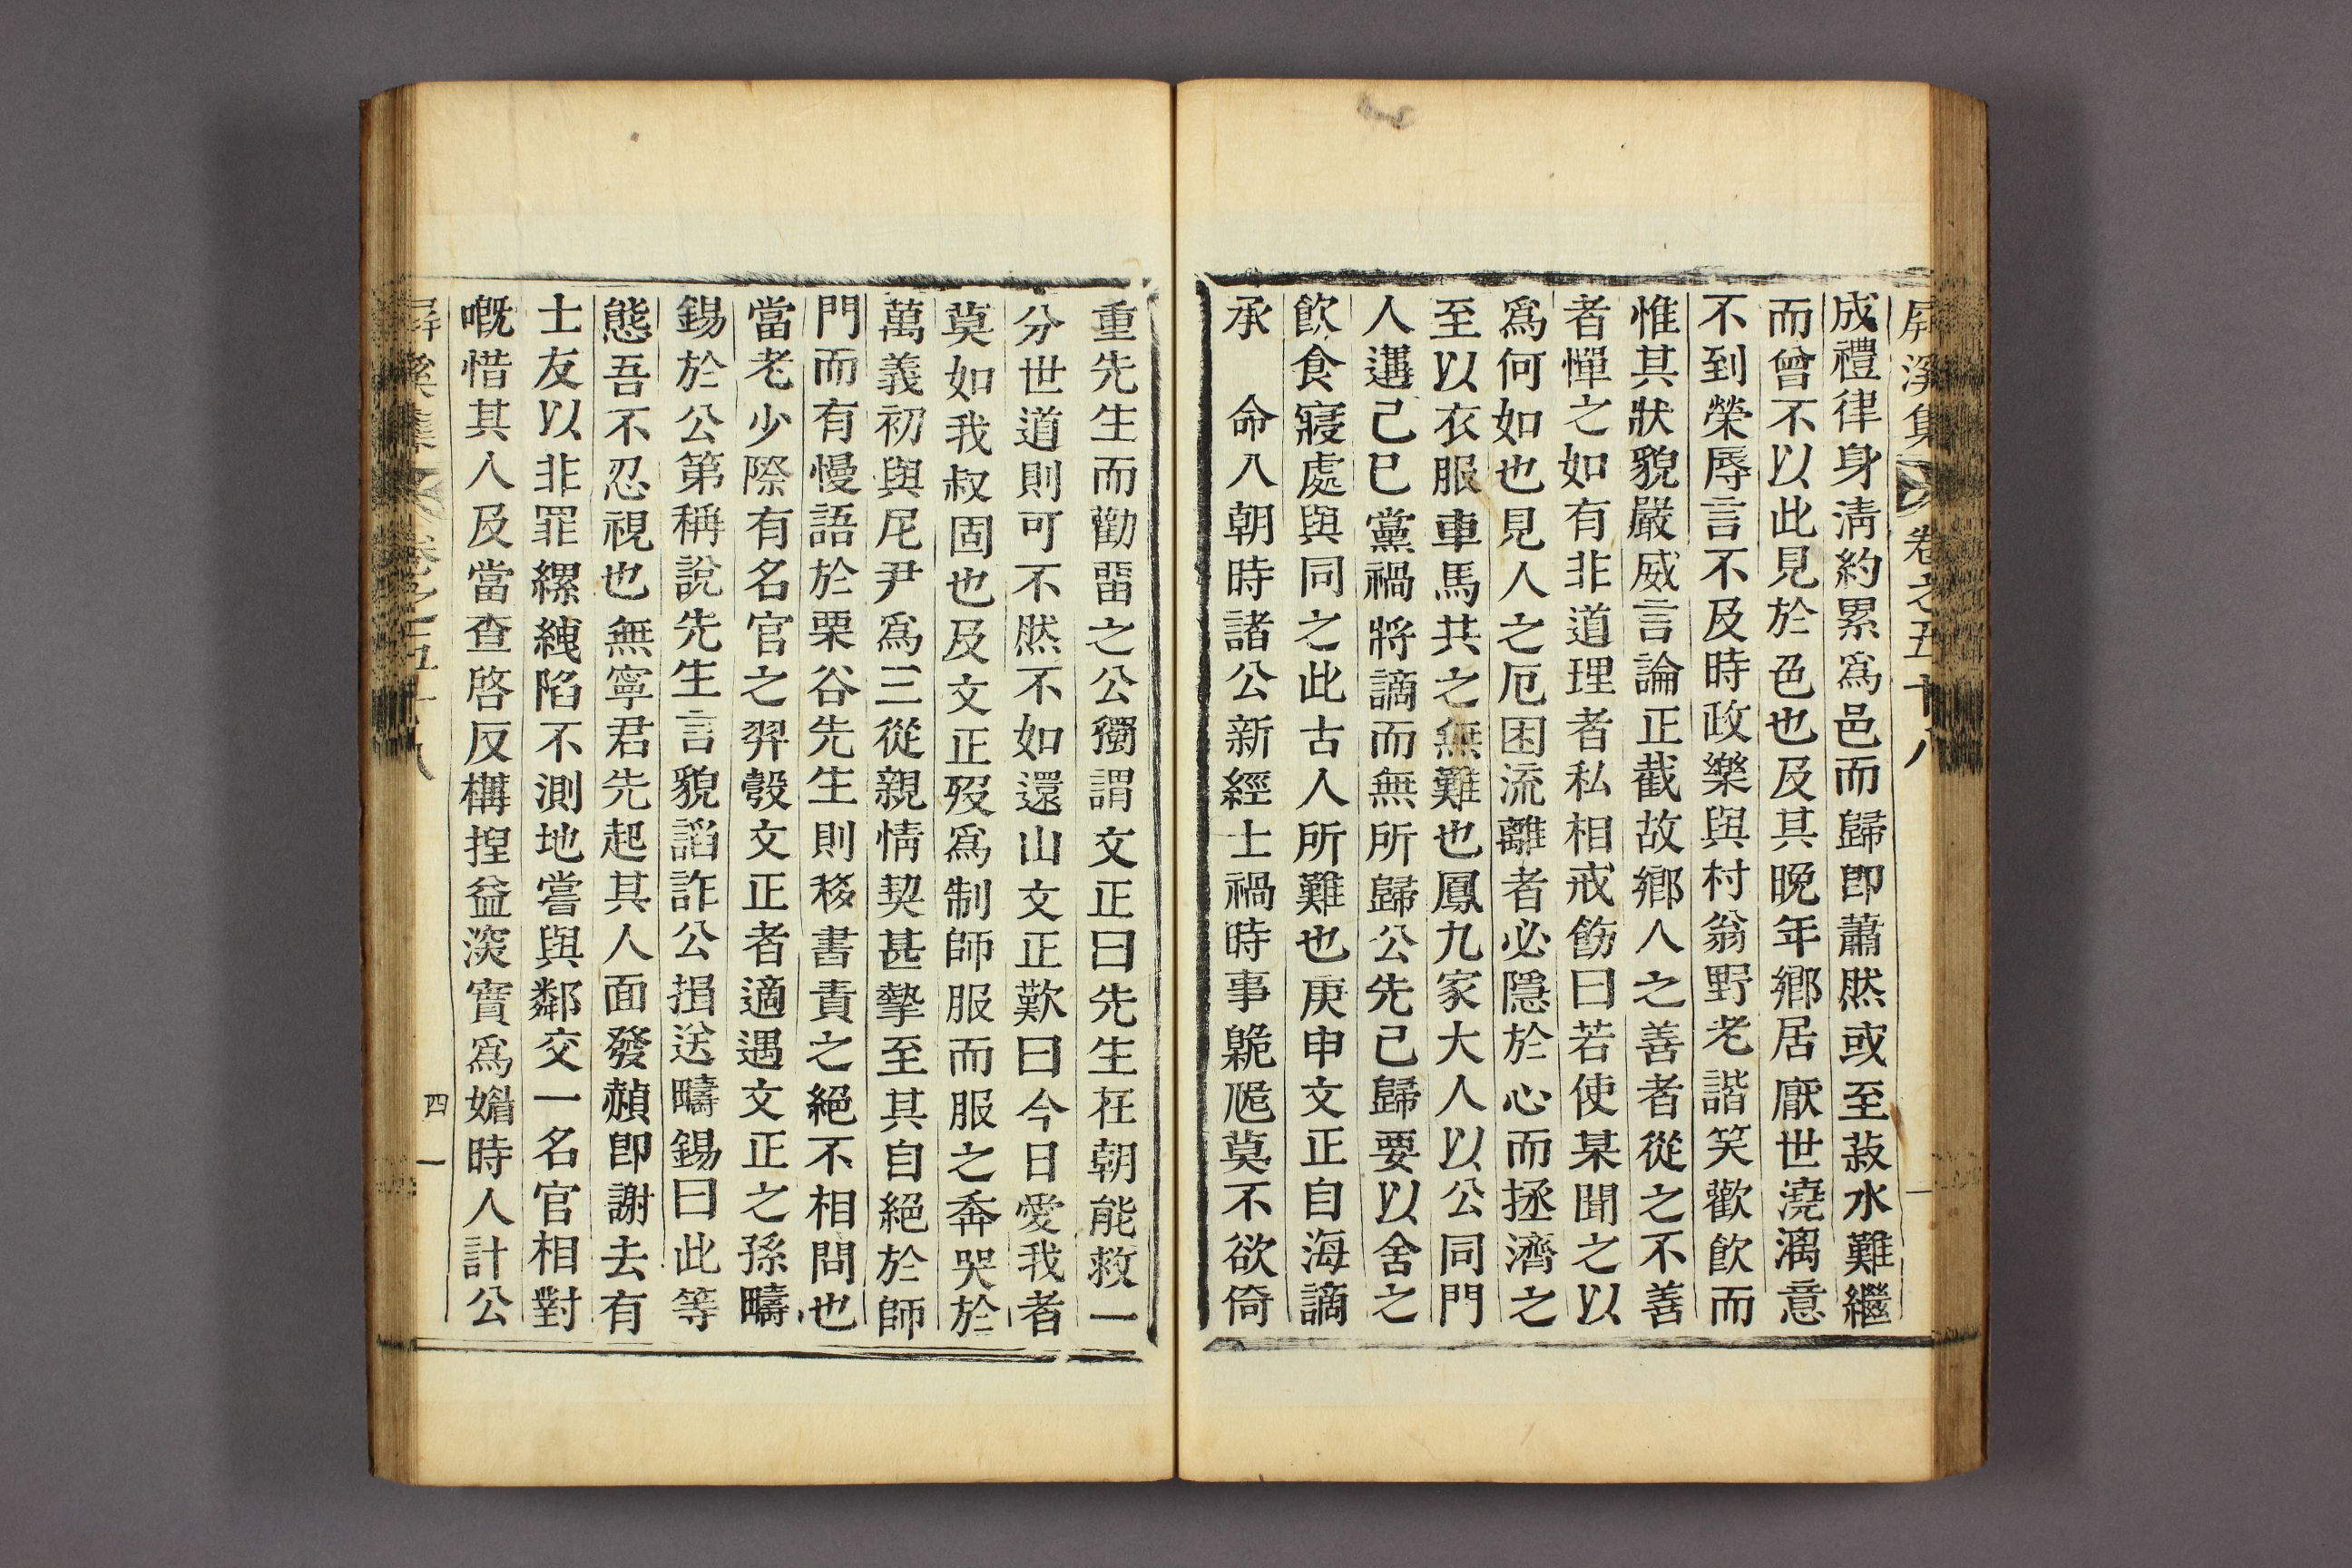 屛溪集 卷之五十八
成禮律身淸約累爲邑而歸卽蕭然或至菽水難繼
而曾不以此見於色也及其晩年鄕居厭世澆漓意
不到榮辱言不及時政樂與村翁野老諧笑歡飮而
惟其狀貌嚴威言論正截故鄕人之善者從之不善
者憚之如有非道理者私相戒飭曰若使某聞之以
爲何如也見人之厄困流離者必隱於心而拯濟之
至以衣服車馬共之無難也鳳九家大人以公同門
人遘己巳黨禍將謫而無所歸公先己歸要以舍之
飮食寢處與同之此古人所難也庚申文正自海謫
承　命入朝時諸公新經士禍時事臲卼莫不欲倚
重先生而勸留之公獨謂文正曰先生在朝能救一
分世道則可不然不如還山文正歎曰今日愛我者
莫如我叔固也及文正歿爲制師服而服之奔哭於
萬義初與尼尹爲三從親情契甚摯至其自絕於師
門而有慢語於栗谷先生則移書責之絕不相問也
當老少際有名官之羿彀文正者適遇文正之孫疇
錫於公第稱說先生言貌謟詐公揖送疇錫曰此等
態吾不忍視也無寧君先起其人面發赬卽謝去有
士友以非罪縲絏陷不測地嘗與鄰交一名官相對
嘅惜其人及當查啓反構捏益深實爲媚時人計公
屛溪集 卷之五十八
四 一